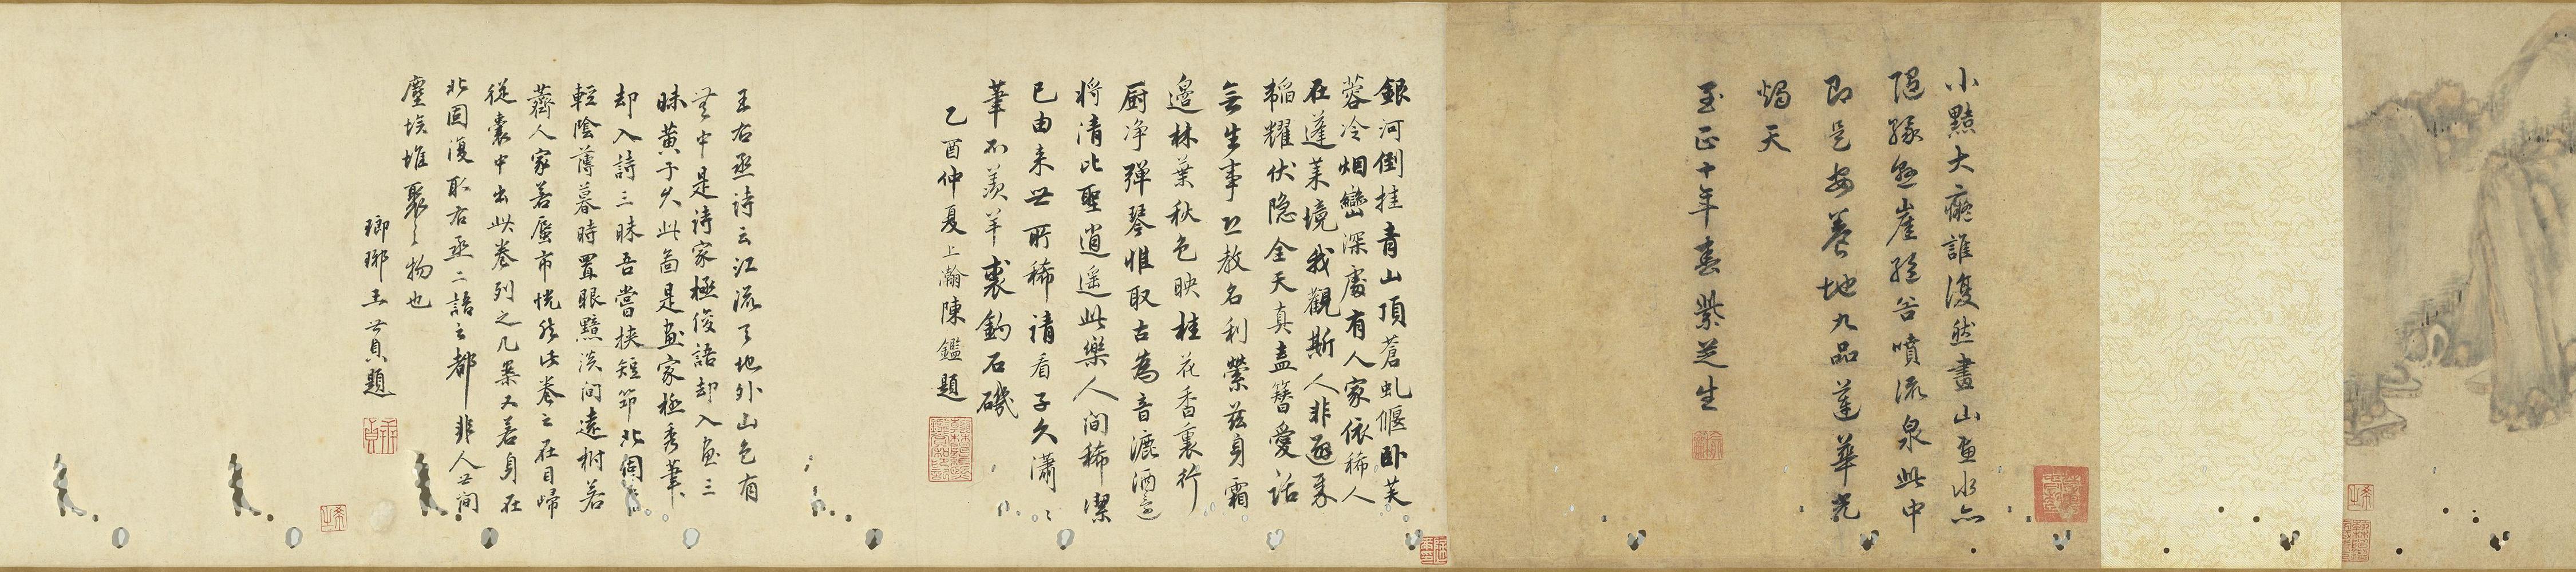 小黠大癡誰復然畫山畫水亦
隨緣懸崖絕谷噴流泉此中
即是安養地九品蓮華光
燭天
至正十年春紫芝生
銀河倒挂青山頂蒼虬偃臥芙
蓉冷烟巒深處有人家依稀人
在蓬萊境我觀斯人非避秦
韜耀伏隱全天真盍簪愛話
無生事忍教名利縈茲身霜
邊林葉秋色映桂花香裏行
厨净彈琴惟取古為音漉酒
將清比聖逍遥此樂人間稀潔
己由来世所稀請看子久瀟〻
筆不羨羊裘釣石磯
乙酉仲夏上瀚陳鑑題
王右丞詩云江流天地外山色有
無中是詩家極俊語却入畫三
昧黃子久此圖是畫家極秀筆
却入詩三昧吾嘗挾短笻北固
輕陰薄暮時置眼黯淡間遠樹若
薺人家若蜃市恍然此卷之在目歸
從囊中出此卷列之几案又若身在
北固復取右丞二語之都非人世間
塵埃堆聚之物也
瑯琊王世貞題